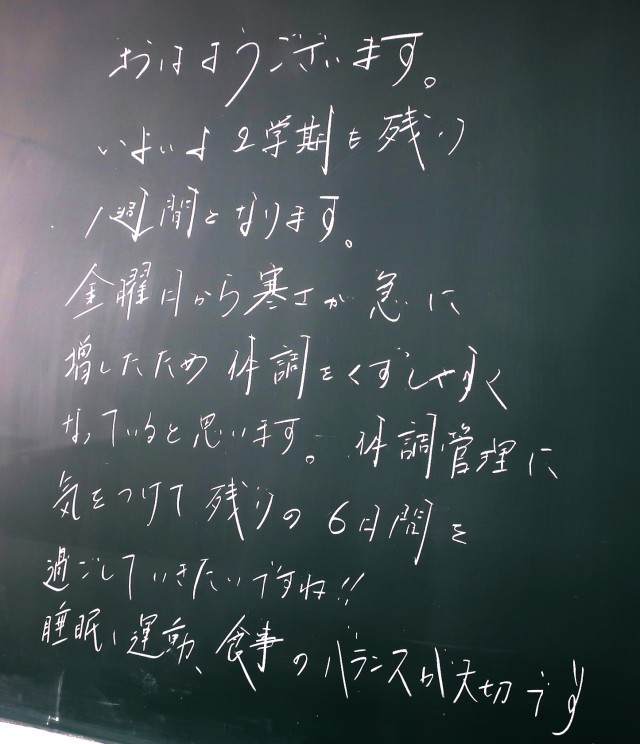 おはようございます。
いよいよ2学期も残り
1週間となります。
金曜日から寒さが急に
増したため体調をくずしやすく
なっていると思います。体調管理に
気をつけて残りの6日間を
過ごしていきたいですね!!
睡眠、運動、食事のバランスが大切です